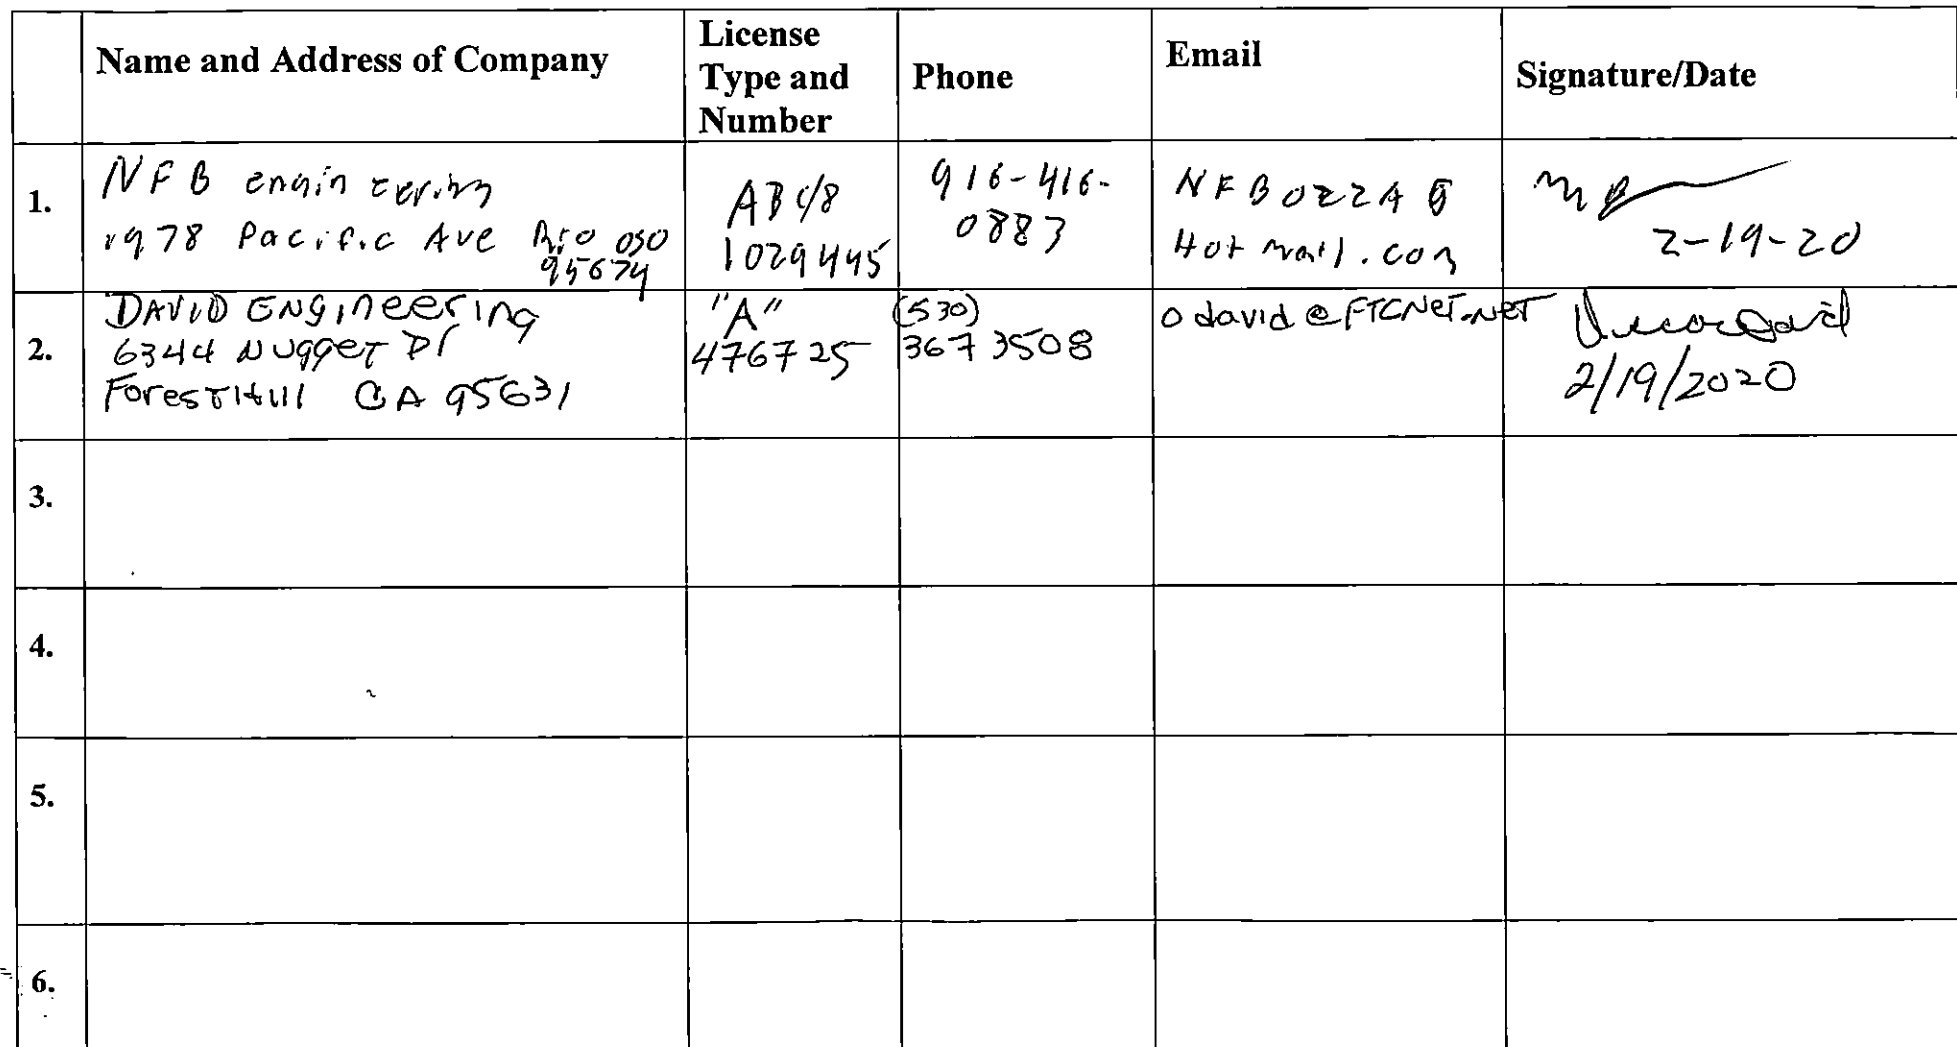 Name and Address of Company
License
Type and
Number
Phone
Email
Signature/Date
1.
NFB engineering
1978 Pacific Ave Rio oso
95674
ABC/8
1029445
916-416-
0883
NFBOZZA@
Hotmail.com
2-19-20
2.
DAVID ENGineering
6344 Nugget Dr
ForestHill CA 95631
"A"
476725
(530)
367 3508
odavid@FTCNeT.NeT
2/19/2020
3.
4.
5.
6.